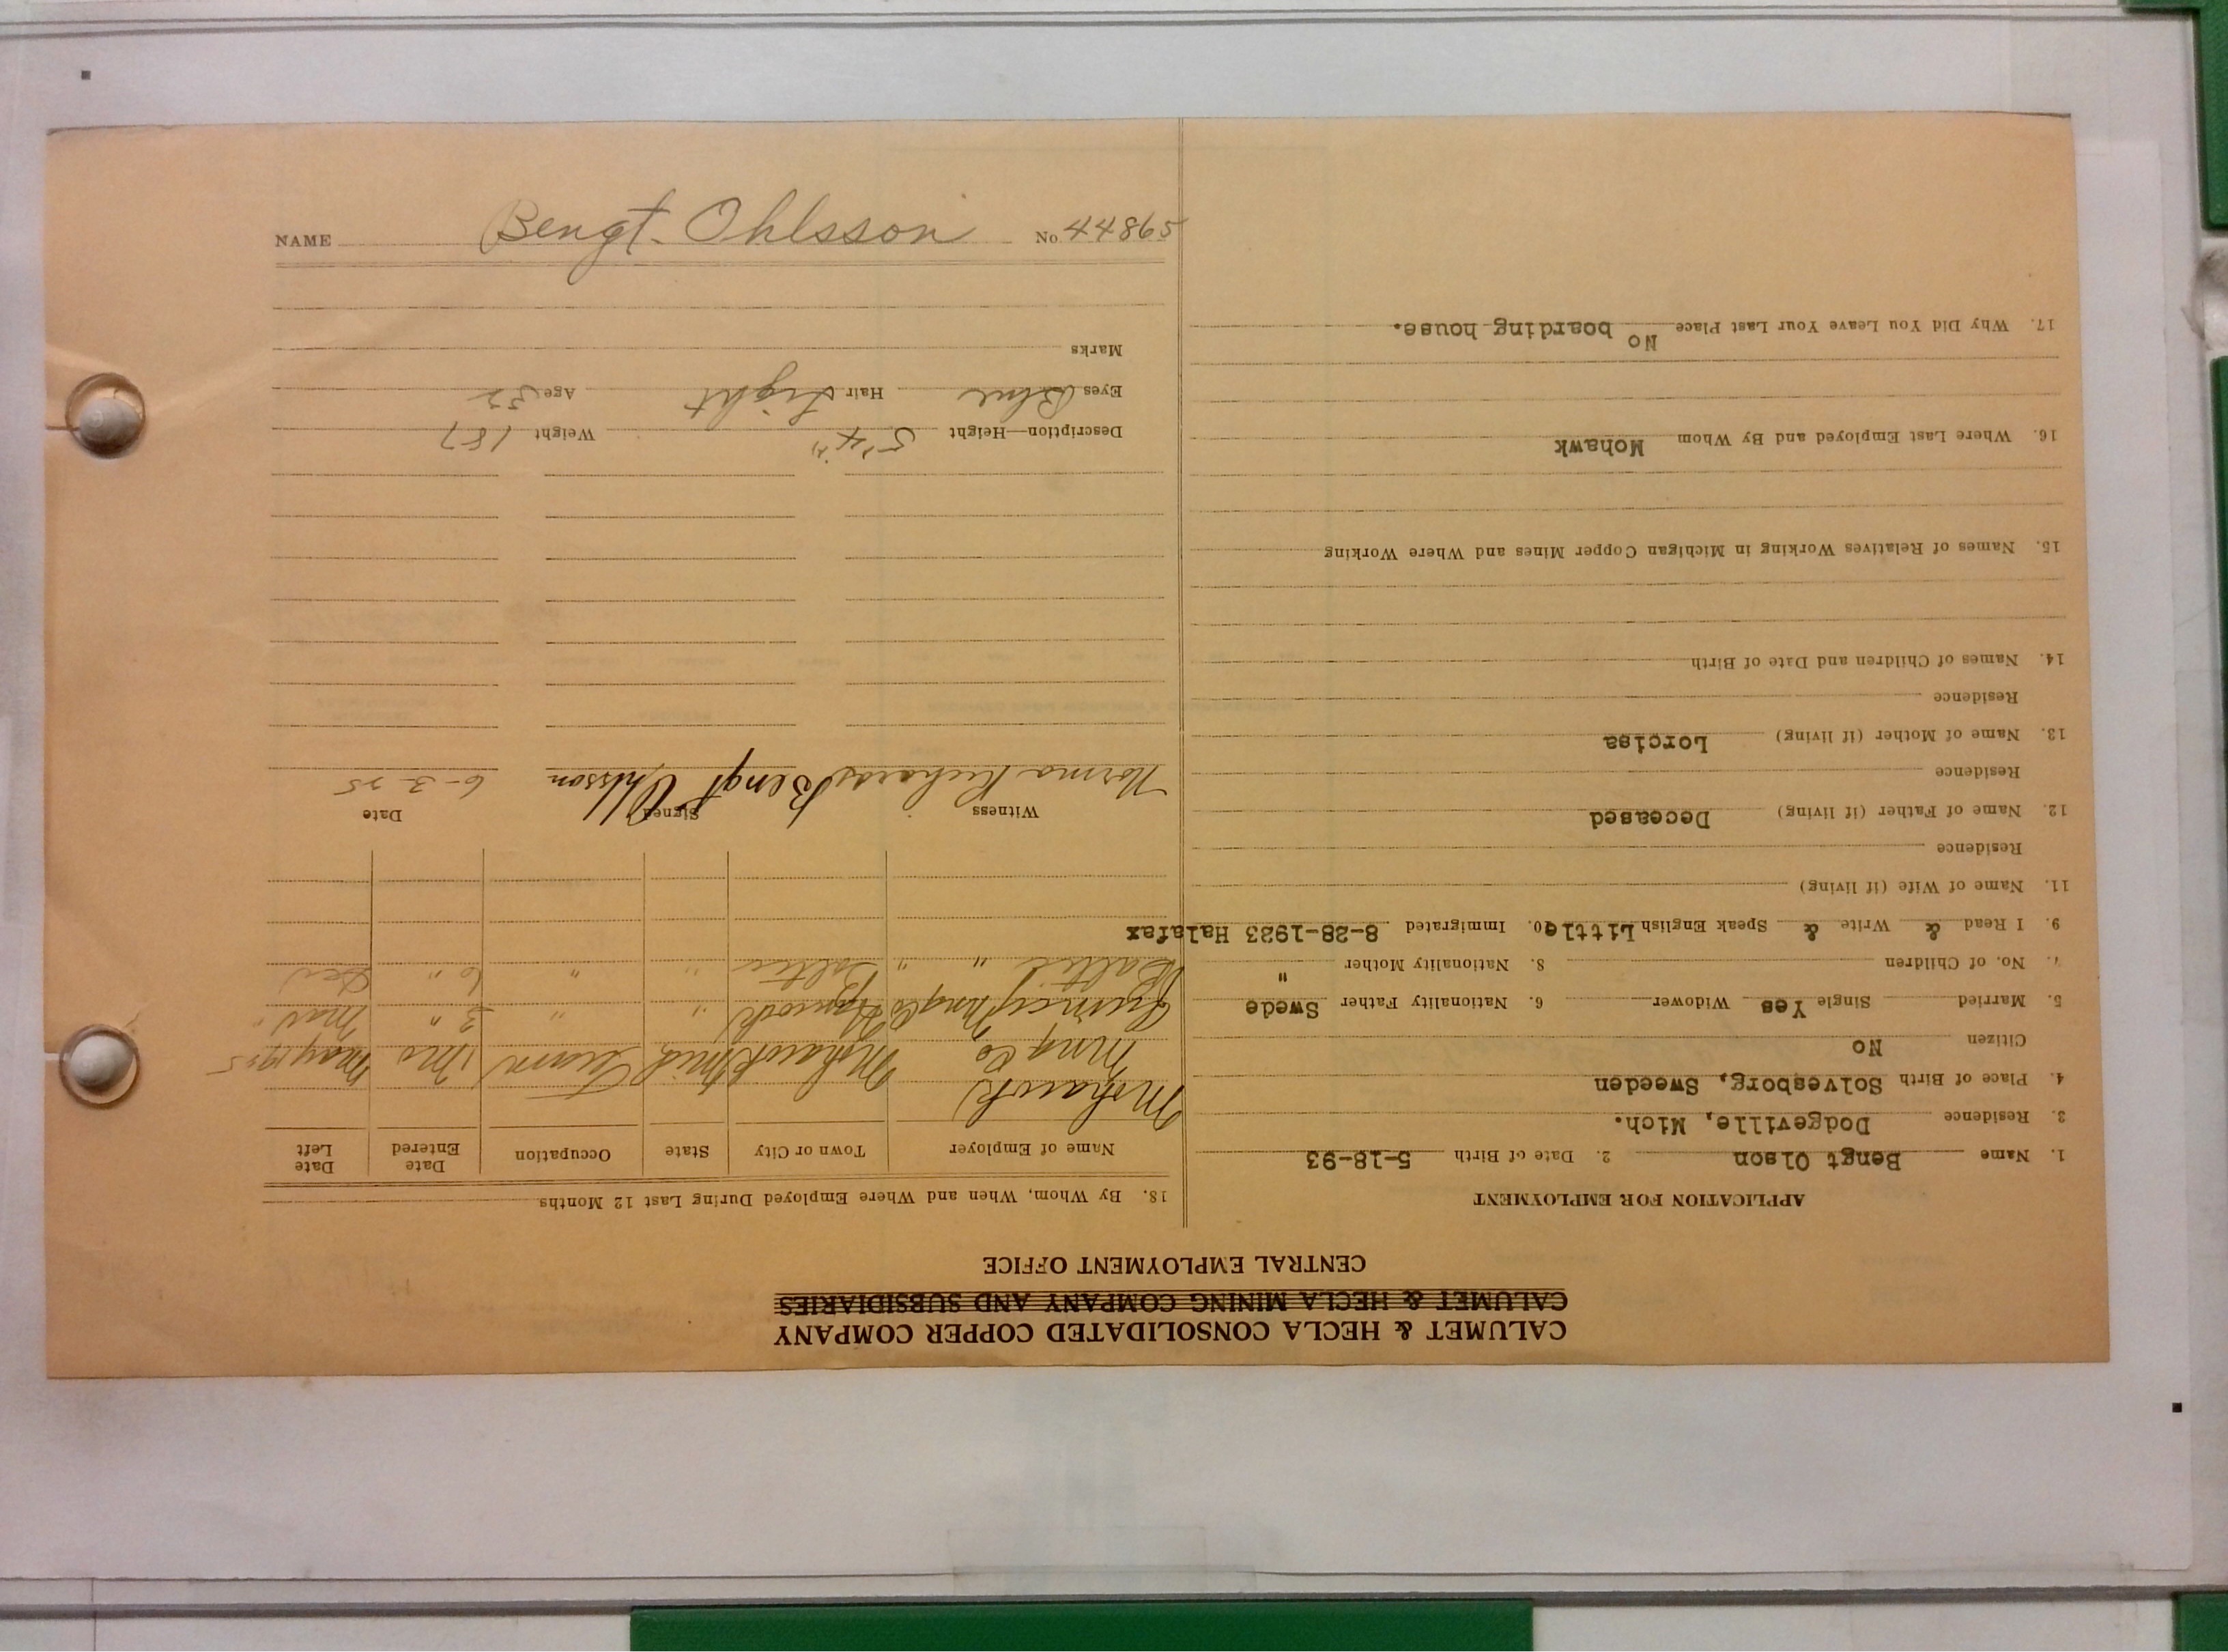 CALUMET & HECLA CONSOLIDATED COPPER COMPANY
CALUMET & HECLA MINING COMPANY AND SUBSIDIARIES
CENTRAL EMPLOYMENT OFFICE
APPLICATION FOR EMPLOYMENT
1. Name Bengt Olson 2. Date of Birth 5-18-93
3. Residence Dodgeville, Mich.
4. Place of Birth Solvesborg, Sweeden
Citizen No
5. Married Single Yes Widower 6. Nationality Father Swede
7. No. of Children 8. Nationality Mother "
9. I Read & Write & Speak English Little 0. Immigrated 8-28-1923 Halafax
11. Name of Wife (if living)
Residence
12. Name of Father (if living) Deceased
Residence
13. Name of Mother (if living) Lorcisa
Residence
14. Names of Children and Date of Birth
15. Names of Relatives Working in Michigan Copper Mines and Where Working
16. Where Last Employed and By Whom Mohawk
17. Why Did You Leave Your Last Place No boarding house.
18. By Whom, When and Where Employed During Last 12 Months
Name of Employer Town or City State Occupation Date Entered Date Left
Mohawk
Mng Co Mohawk Mich Tramr 1 Mo May 1925
Quincy Mng Co Hancock " " 3 " Mar "
Baltic " " Baltic " " 6 " Dec
Witness Signed Date
Norma Richards Bengt Ohlsson 6-3-25
Description—Height 5'4" Weight 187
Eyes Blue Hair Light Age 32
Marks
NAME Bengt Ohlsson No 44865